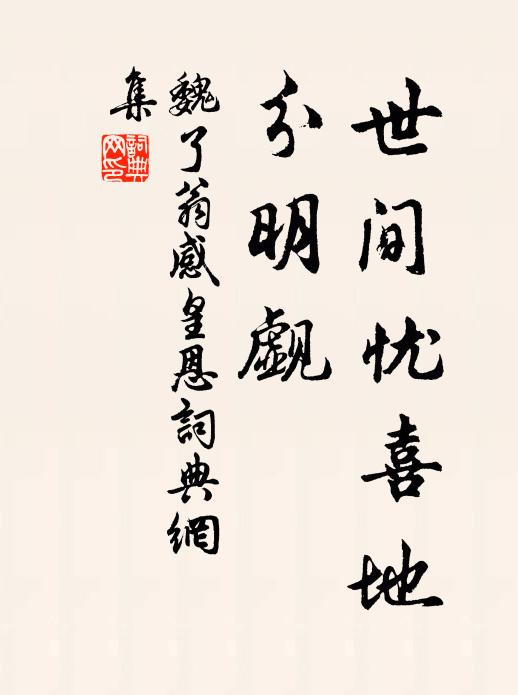 世间忧喜地
分明觑
魏了翁感皇恩詞典網
集
詞典
网印